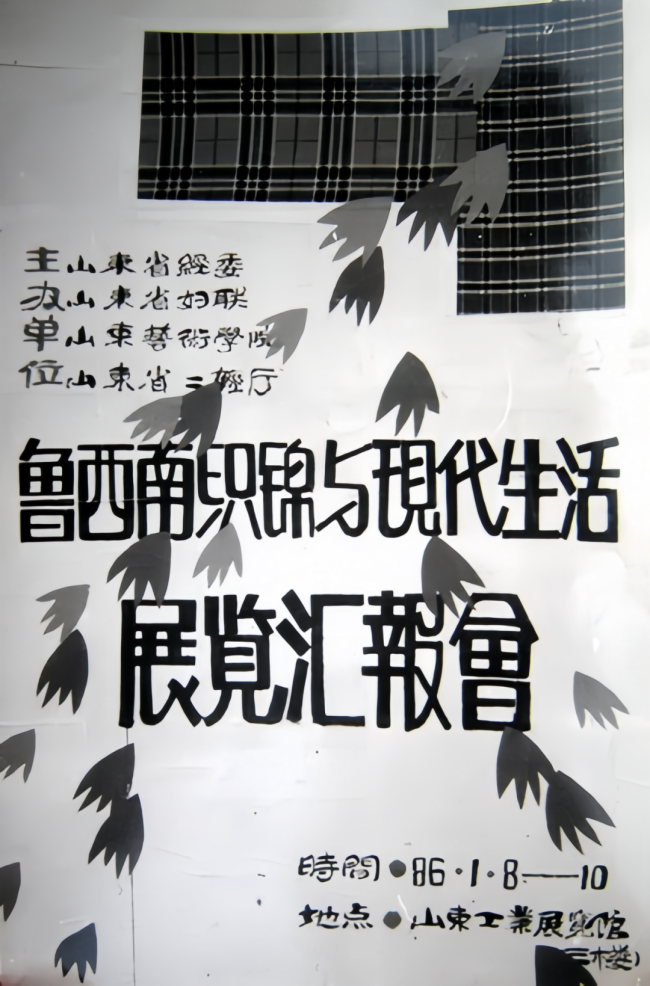 主 山東省經委
办 山東省妇联
单 山東藝術學院
位 山東省二輕厅
鲁西南织锦与現代生活
展览汇報會
時間●86·1·8——10
地点●山東工業展览馆
(三楼)